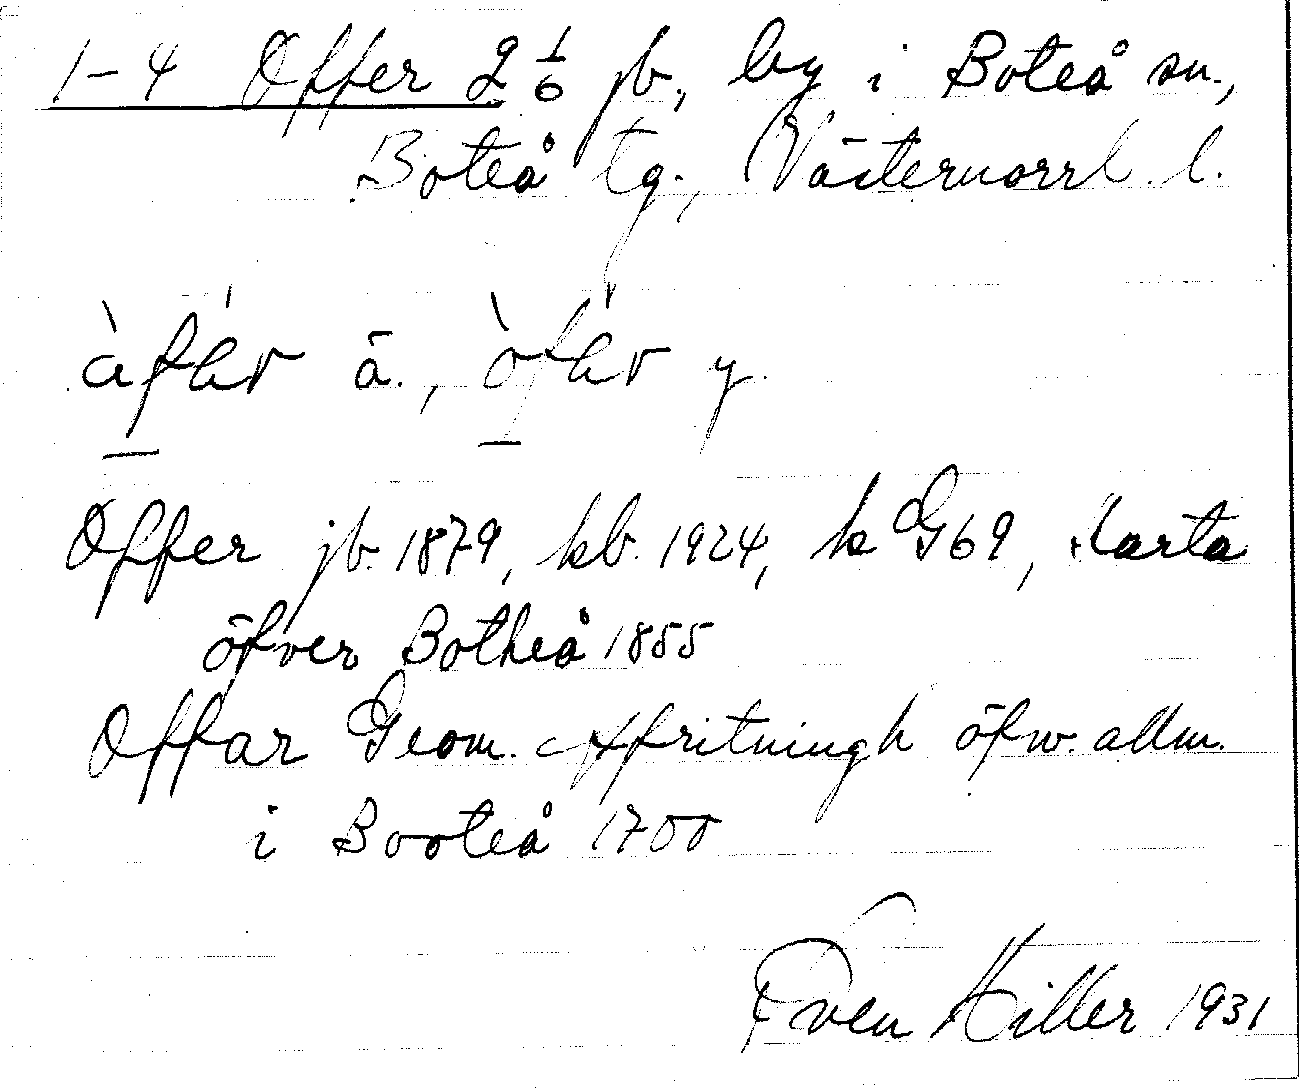 1-4 Offer 2 1/6 jb., by i Boteå sn.,
Boteå tg., Västernorrl. l.
ä., y.
Offer jb. 1879, kb. 1924, k G69, karta
öfver Botheå 1855
Offar Geom. Affritningh öfw. allm.
i Booteå 1700
Sven Hiller 1931